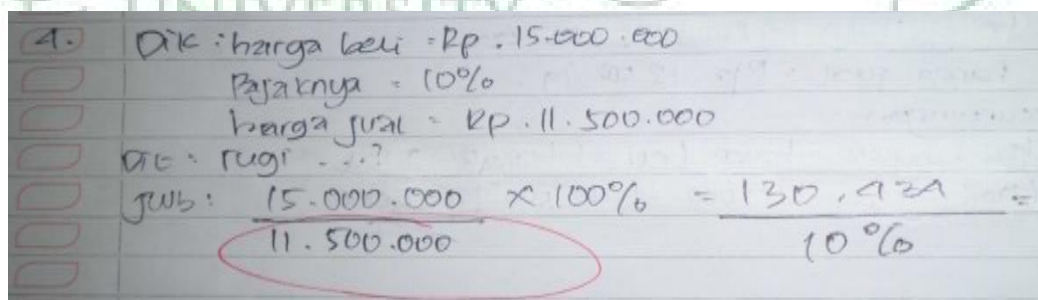 4. Dik : harga beli = Rp. 15.000.000
Pajaknya = 10%
harga jual = Rp. 11.500.000
Dit : rugi ...?
Jwb : 15.000.000 / 11.500.000 × 100% = 130,434 / 10% =